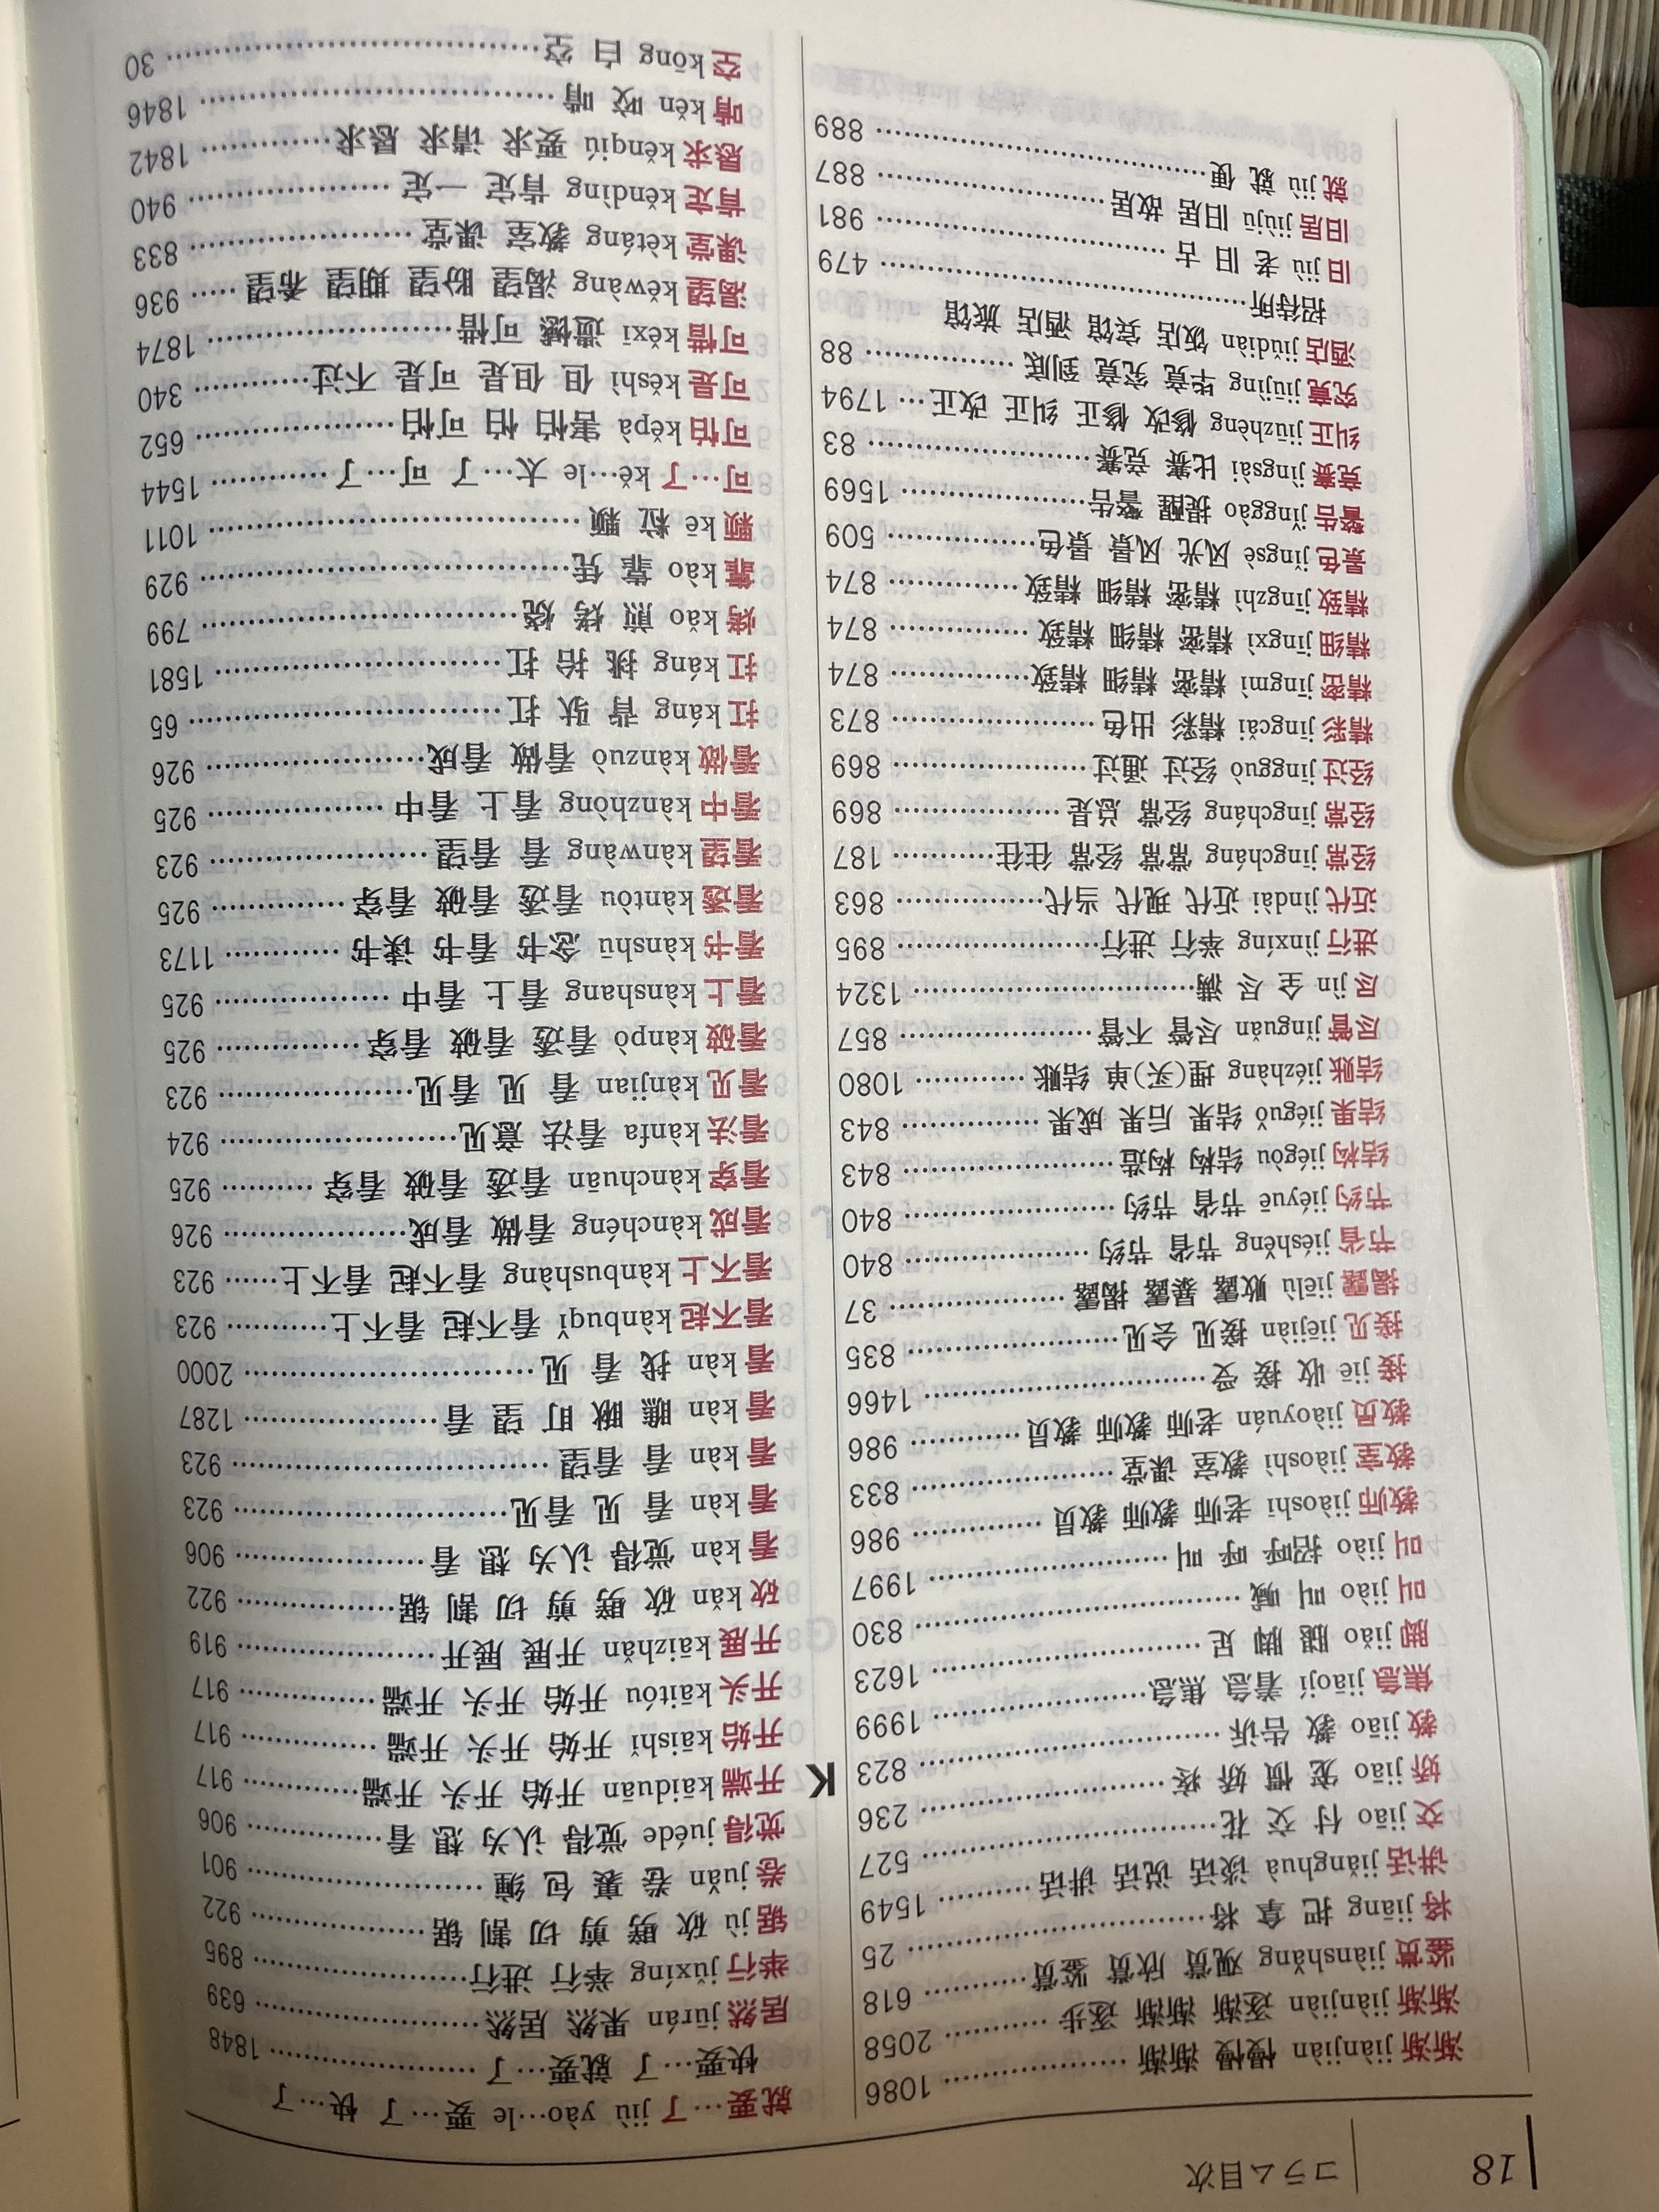 18 コラム目次
渐渐 jiànjiàn 慢慢 渐渐 …………… 1086
渐渐 jiànjiàn 逐渐 渐渐 逐步 ……… 2058
鉴赏 jiànshǎng 观赏 欣赏 鉴赏 ……… 618
将 jiāng 把 拿 将 …………………… 25
讲话 jiǎnghuà 谈话 说话 讲话 ……… 1549
交 jiāo 付 交 花 …………………… 527
娇 jiāo 宠 惯 娇 疼 ………………… 236
教 jiāo 教 告诉 …………………… 823
焦急 jiāojí 着急 焦急 ……………… 1999
脚 jiǎo 腿 脚 足 …………………… 1623
叫 jiào 叫 喊 ……………………… 830
叫 jiào 招呼 呼 叫 ………………… 1997
教师 jiàoshī 老师 教师 教员 ………… 986
教室 jiàoshì 教室 课堂 ……………… 833
教员 jiàoyuán 老师 教师 教员 ……… 986
接 jiē 收 接 受 …………………… 1466
接见 jiējiàn 接见 会见 ……………… 835
揭露 jiēlù 败露 暴露 揭露 …………… 37
节省 jiéshěng 节省 节约 …………… 840
节约 jiéyuē 节省 节约 ……………… 840
结构 jiégòu 结构 构造 ……………… 843
结果 jiéguǒ 结果 后果 成果 ………… 843
结账 jiézhàng 埋(买)单 结账 ……… 1080
尽管 jǐnguǎn 尽管 不管 …………… 857
尽 jìn 全 尽 满 …………………… 1324
进行 jìnxíng 举行 进行 …………… 895
近代 jìndài 近代 现代 当代 ………… 863
经常 jīngcháng 常常 经常 往往 …… 187
经常 jīngcháng 经常 总是 ………… 869
经过 jīngguò 经过 通过 …………… 869
精彩 jīngcǎi 精彩 出色 …………… 873
精密 jīngmì 精密 精细 精致 ……… 874
精细 jīngxì 精密 精细 精致 ……… 874
精致 jīngzhì 精密 精细 精致 ……… 874
景色 jǐngsè 风光 风景 景色 ……… 509
警告 jǐnggào 提醒 警告 ………… 1569
竞赛 jìngsài 比赛 竞赛 …………… 83
纠正 jiūzhèng 修改 修正 纠正 改正 … 1794
究竟 jiūjìng 毕竟 究竟 到底 ……… 88
酒店 jiǔdiàn 饭店 宾馆 酒店 旅馆
招待所 …………………………… 479
旧 jiù 老 旧 古 ………………… 981
旧居 jiùjū 旧居 故居 …………… 887
就 jiù 就 便 …………………… 889
就要…了 jiù yào…le 要…了 快…了
快要…了 就要…了 ……………… 1848
居然 jūrán 果然 居然 …………… 639
举行 jǔxíng 举行 进行 …………… 895
锯 jù 砍 劈 剪 切 割 锯 ………… 922
卷 juǎn 卷 裹 包 缠 …………… 901
觉得 juéde 觉得 认为 想 看 ……… 906
K
开端 kāiduān 开始 开头 开端 …… 917
开始 kāishǐ 开始 开头 开端 ……… 917
开头 kāitóu 开始 开头 开端 ……… 917
开展 kāizhǎn 开展 展开 ………… 919
砍 kǎn 砍 劈 剪 切 割 锯 ……… 922
看 kàn 觉得 认为 想 看 ………… 906
看 kàn 看 见 看见 …………… 923
看 kàn 看 看望 ……………… 923
看 kàn 瞧 瞅 盯 望 看 ………… 1287
看 kàn 找 看 见 ……………… 2000
看不起 kànbuqǐ 看不起 看不上 …… 923
看不上 kànbushàng 看不起 看不上 …… 923
看成 kànchéng 看做 看成 ……… 926
看穿 kànchuān 看透 看破 看穿 …… 925
看法 kànfa 看法 意见 ………… 924
看见 kànjian 看 见 看见 ……… 923
看破 kànpò 看透 看破 看穿 …… 925
看上 kànshang 看上 看中 ……… 925
看书 kànshū 念书 看书 读书 …… 1173
看透 kàntòu 看透 看破 看穿 …… 925
看望 kànwàng 看 看望 ……… 923
看中 kànzhòng 看上 看中 ……… 925
看做 kànzuò 看做 看成 ……… 926
扛 káng 背 驮 扛 …………… 65
扛 káng 挑 抬 扛 …………… 1581
烤 kǎo 煎 烤 烧 …………… 799
靠 kào 靠 凭 ……………… 929
颗 kē 粒 颗 ……………… 1011
可…了 kě…le 太…了 可…了 …… 1544
可怕 kěpà 害怕 怕 可怕 ……… 652
可是 kěshì 但 但是 可是 不过 …… 340
可惜 kěxī 遗憾 可惜 ………… 1874
渴望 kěwàng 渴望 盼望 期望 希望 …… 936
课堂 kètáng 教室 课堂 ……… 833
肯定 kěndìng 肯定 一定 ……… 940
恳求 kěnqiú 要求 请求 恳求 …… 1842
啃 kěn 咬 啃 ……………… 1846
空 kōng 白 空 ……………… 30